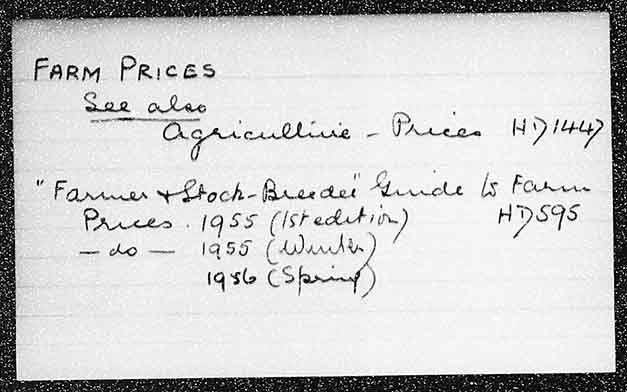 FARM PRICES
See also
Agriculture - Prices HD1447
"Farmer & Stock-Breeder" Guide to Farm
Prices. 1955 (1st edition) HD595
- do - 1955 (Winter)
1956 (Spring)